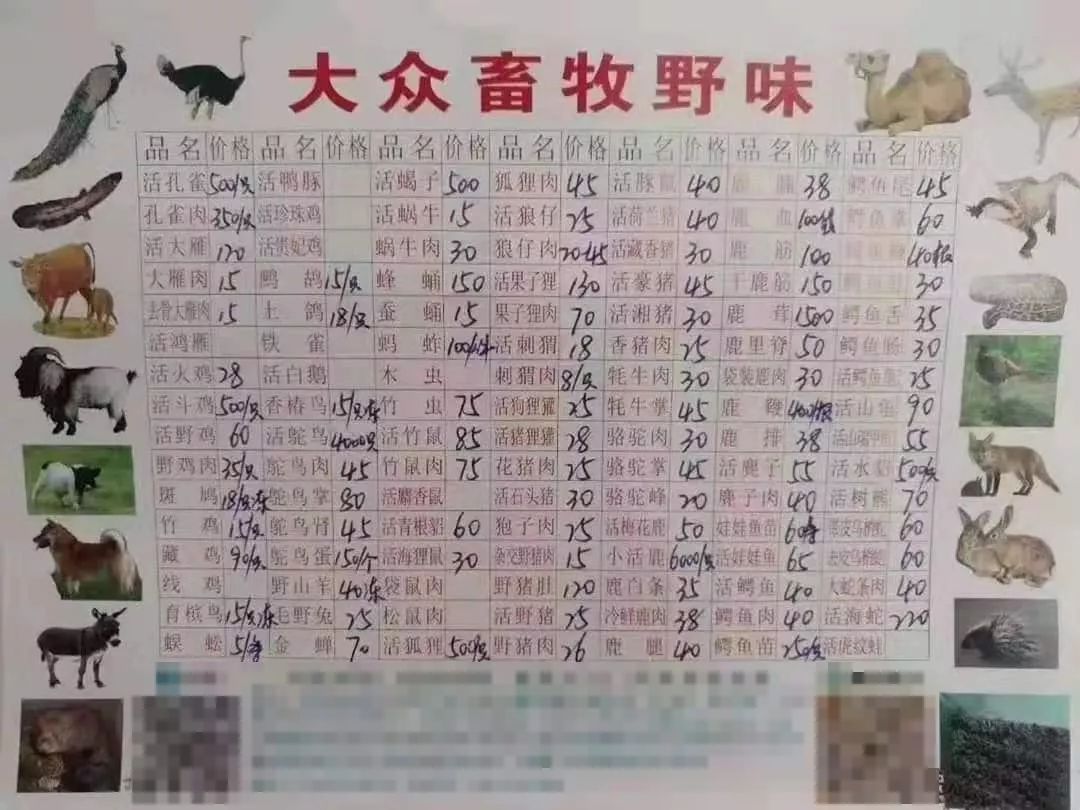 大众畜牧野味
品名 价格 品名 价格 品名 价格 品名 价格 品名 价格 品名 价格 品名 价格
活孔雀 500/只 活鸭豚 活蝎子 500 狐狸肉 45 活豚鼠 40 38 鳄鱼尾 45
孔雀肉 350/只 活珍珠鸡 活蜗牛 15 活狼仔 25 活荷兰猪 40 鹿血 鳄鱼掌 60
活大雁 120 活贵妃鸡 蜗牛肉 30 狼仔肉 活藏香猪 30 鹿筋 100
大雁肉 15 鹧鸪 15/只 蜂蛹 150 活果子狸 130 活豪猪 45 干鹿筋 150 30
去骨大雁肉 15 土鸽 18/只 蚕蛹 15 果子狸肉 70 活湘猪 30 鹿茸 1500 鳄鱼舌 35
活鸿雁 铁雀 蚂蚱 活刺猬 18 香猪肉 25 鹿里脊 50 鳄鱼肠 30
活火鸡 28 活白鹅 木虫 刺猬肉 8/只 牦牛肉 30 袋装鹿肉 30 25
活斗鸡 500/只 香椿鸟 15/只冻 竹虫 75 活狗狸獾 25 牦牛掌 45 鹿鞭 400/根 活山龟 90
活野鸡 60 活鸵鸟 4000只 活竹鼠 85 活猪狸獾 28 骆驼肉 30 鹿排 38 55
野鸡肉 35/只 鸵鸟肉 45 竹鼠肉 75 花猪肉 25 骆驼掌 45 活麂子 55 活水貂 500/只
斑鸠 18/只冻 鸵鸟掌 80 活麝香鼠 活石头猪 30 骆驼峰 20 麂子肉 40 活树熊 70
竹鸡 15/只 鸵鸟肾 45 活青根貂 60 狍子肉 25 活梅花鹿 50 娃娃鱼苗 60
藏鸡 90/只 鸵鸟蛋 150/个 活海狸鼠 30 杂交野猪肉 15 小活鹿 6000/只 活娃娃鱼 65 60
线鸡 野山羊 40冻 袋鼠肉 野猪肚 120 鹿白条 35 活鳄鱼 40 大蛇条肉 40
育槟鸟 15/只冻 毛野兔 25 松鼠肉 活野猪 25 冷鲜鹿肉 38 鳄鱼肉 40 活海蛇 220
蜈蚣 金蝉 70 活狐狸 500只 野猪肉 26 鹿腿 40 鳄鱼苗 250/只 活虎纹蛙